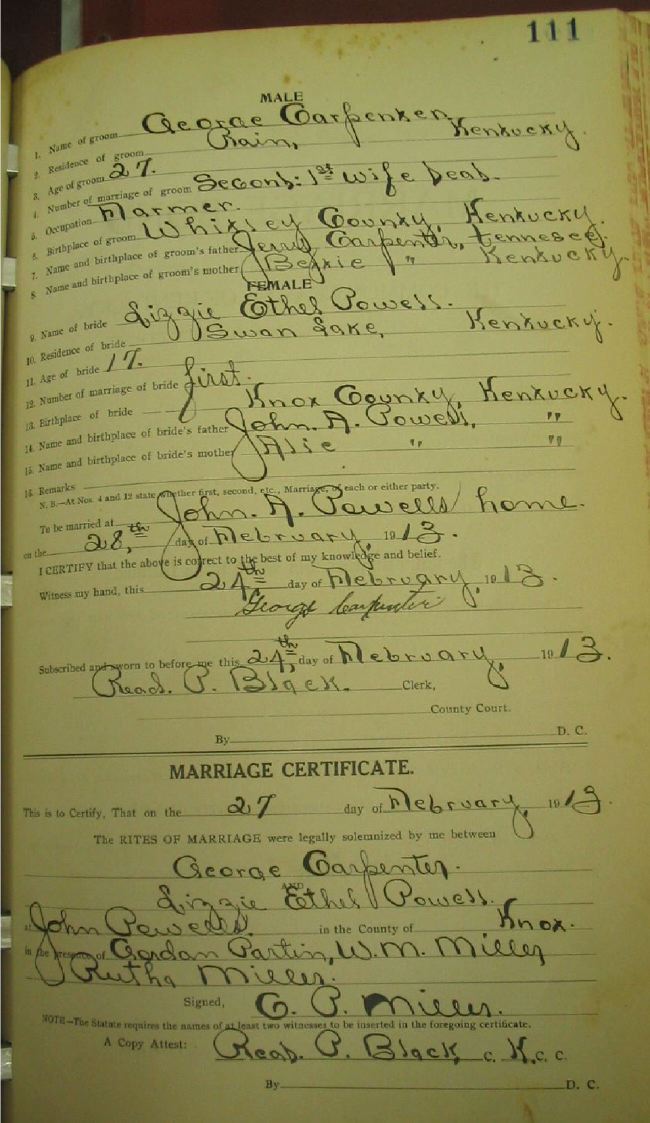 111
MALE
1. Name of groom George Carpenter
2. Residence of groom Rain, Kentucky.
3. Age of groom 27.
4. Number of marriage of groom Second: 1st wife Dead.
5. Occupation Farmer.
6. Birthplace of groom Whitley County, Kentucky.
7. Name and birthplace of groom's father Jerry Carpenter, Tennesee.
8. Name and birthplace of groom's mother " Kentucky.
FEMALE
9. Name of bride Lizzie Ethel Powell.
10. Residence of bride Swan Lake, Kentucky.
11. Age of bride 17.
12. Number of marriage of bride first.
13. Birthplace of bride Knox County, Kentucky.
14. Name and birthplace of bride's father John. A. Powell, "
15. Name and birthplace of bride's mother Alie " "
16. Remarks
N. B.—At Nos. 4 and 12 state whether first, second, etc., Marriage, of each or either party.
To be married at John. A. Powells home.
on the 28,th day of February, 1913.
I CERTIFY that the above is correct to the best of my knowledge and belief.
Witness my hand, this 24th day of February, 1913.
George Carpenter
Subscribed and sworn to before me this 24,th day of February, 1913.
Read. P. Black. Clerk,
County Court.
By D. C.
MARRIAGE CERTIFICATE.
This is to Certify, That on the 27 day of February, 1913.
The RITES OF MARRIAGE were legally solemnized by me between
George Carpenter.
AND
Lizzie Ethel Powell.
at John Powells. in the County of Knox.
in the presence of Gordan Partin, W. M. Miller
Rutha Miller.
Signed, G. P. Miller.
NOTE—The Statute requires the names of at least two witnesses to be inserted in the foregoing certificate.
A Copy Attest: Read. P. Black C. K. C. C.
By D. C.